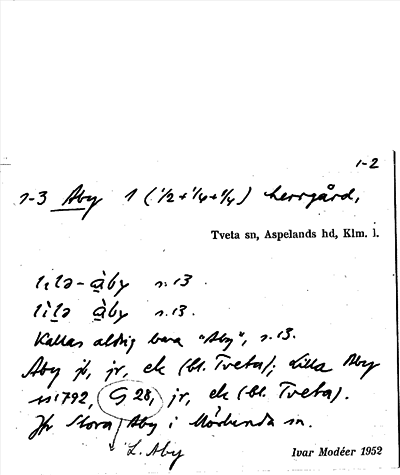 1-2
1-3 Åby 1 (1/2+1/4+1/4) herrgård,
Tveta sn, Aspelands hd, Klm. l.
lìtə-àby s. 13.
lìtə àby s. 13.
Kallas aldrig bara "Åby", s. 13.
Åby jb, jr, ek (bl. Tveta); Lilla Åby
1792, G 28, jr, ek (bl. Tveta).
Jfr Stora Åby i Mörlunda sn.
L. Åby
Ivar Modéer 1952